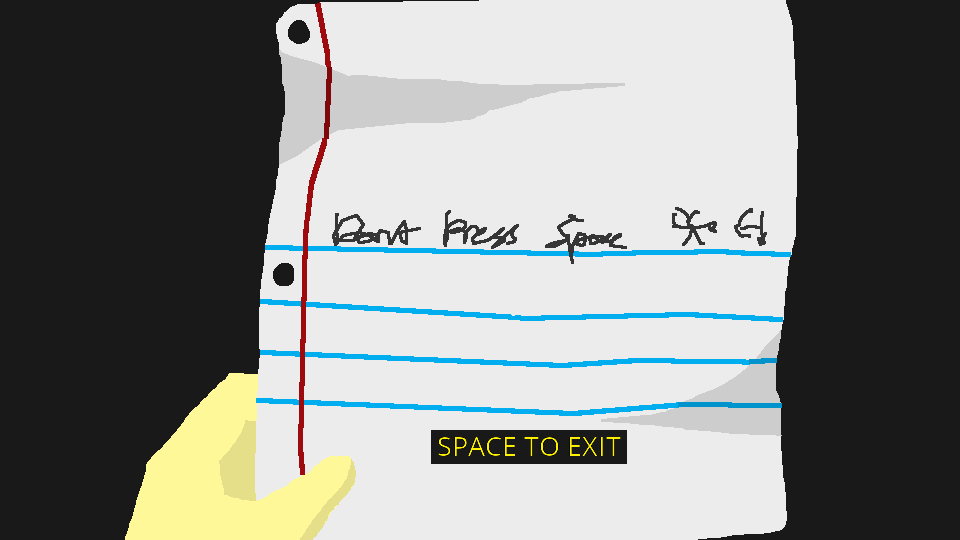 Dont Press Space
SPACE TO EXIT